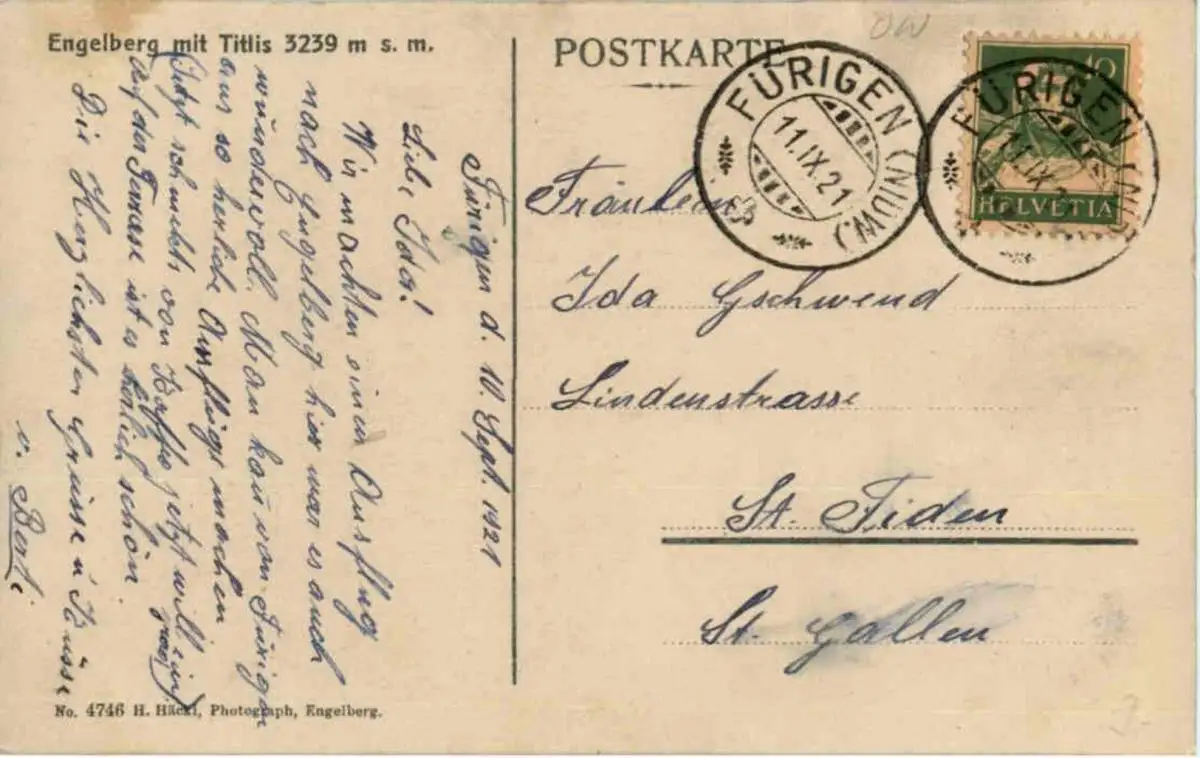 Engelberg mit Titlis 3239 m s. m.
POSTKARTE
OW
FÜRIGEN (NIDW.)
11.IX.21
FÜRIGEN (NIDW.)
11.IX.21
10
HELVETIA
Fürigen d. 10. Sept. 1921
Liebe Ida!
Wir machten einen Ausflug
nach Engelberg hier war es auch
wundervoll. Man kan von Fürigen
aus so herliche Ausflüge machen
Jetzt schnebts von Kaffe jetzt will einj
Auf der Terrasse ist es herlich schön
Die Herzlichsten Grüsse u Küsse
v. Berti
Fräulein
Ida Gschwend
Lindenstrasse
St. Fiden
St. Gallen
No. 4746 H. Häckl, Photograph, Engelberg.